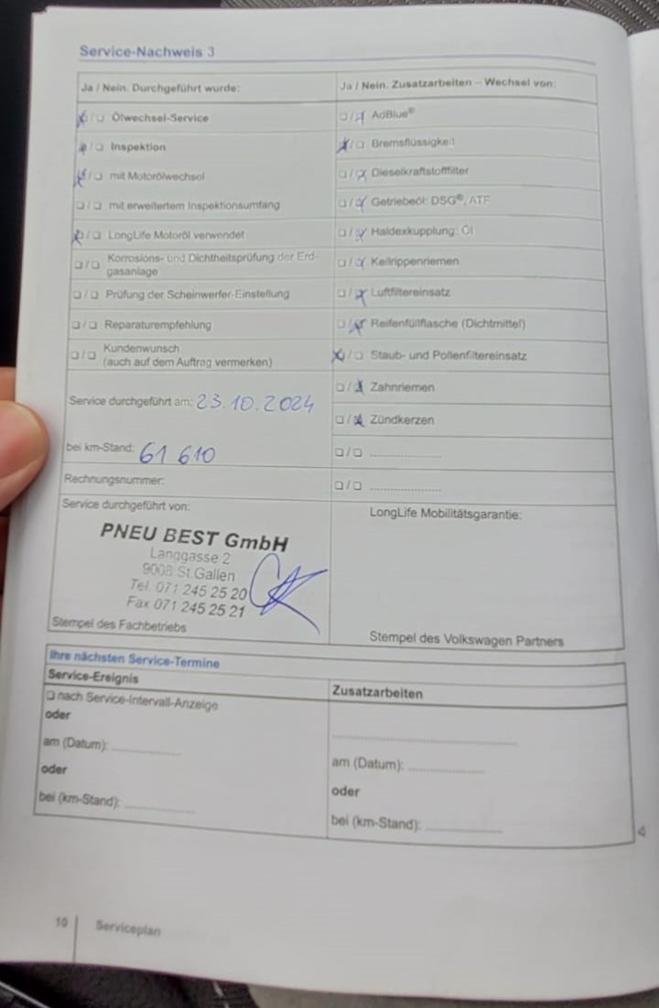 Service-Nachweis 3
Ja / Nein. Durchgeführt wurde:
☒/☐ Ölwechsel-Service
☒/☐ Inspektion
☒/☐ mit Motorölwechsel
☐/☐ mit erweitertem Inspektionsumfang
☒/☐ LongLife Motoröl verwendet
☐/☐ Korrosions- und Dichtheitsprüfung der Erd-
gasanlage
☐/☐ Prüfung der Scheinwerfer-Einstellung
☐/☐ Reparaturempfehlung
☐/☐ Kundenwunsch
(auch auf dem Auftrag vermerken)
Service durchgeführt am: 23.10.2024
bei km-Stand: 61 610
Rechnungsnummer:
Service durchgeführt von:
PNEU BEST GmbH
Langgasse 2
9008 St.Gallen
Tel. 071 245 25 20
Fax 071 245 25 21
Stempel des Fachbetriebs
Ja / Nein. Zusatzarbeiten – Wechsel von:
☐/☒ AdBlue®
☒/☐ Bremsflüssigkeit
☐/☒ Dieselkraftstofffilter
☐/☒ Getriebeöl: DSG®, ATF
☐/☒ Haldexkupplung: Öl
☐/☒ Keilrippenriemen
☐/☒ Luftfiltereinsatz
☐/☒ Reifenfüllflasche (Dichtmittel)
☒/☐ Staub- und Pollenfiltereinsatz
☐/☒ Zahnriemen
☐/☒ Zündkerzen
☐/☐ ....................
☐/☐ ....................
LongLife Mobilitätsgarantie:
Stempel des Volkswagen Partners
Ihre nächsten Service-Termine
Service-Ereignis
☐ nach Service-Intervall-Anzeige
oder
am (Datum): ....................
oder
bei (km-Stand): ....................
Zusatzarbeiten
....................
am (Datum): ....................
oder
bei (km-Stand): ....................
10 Serviceplan